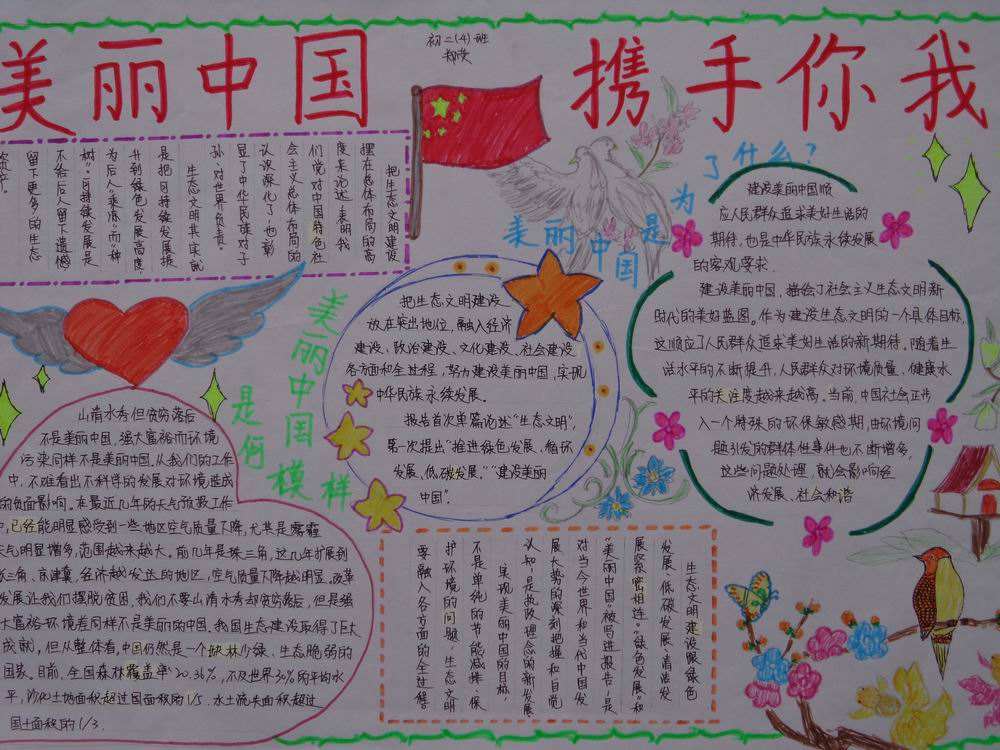 美丽中国 携手你我
初二(4)班
把生态文明建设
摆在总体布局的高
度来论述,表明我
们党对中国特色社
会主义总体布局的
认识深化了,也彰
显了中华民族对子
孙、对世界负责。
生态文明其实就
是把可持续发展提
升到绿色发展高度,
为后人“乘凉”而“种
树”。可持续发展是
不给后人留下遗憾
留下更多的生态
资产。
美丽中国是
为
了什么?
建设美丽中国顺
应人民群众追求美好生活的
期待,也是中华民族永续发展
的客观要求.
建设美丽中国,描绘了社会主义生态文明新
时代的美好蓝图。作为建设生态文明的一个具体目标,
这顺应了人民群众追求美好生活的新期待。随着生
活水平的不断提升,人民群众对环境质量、健康水
平的关注度越来越高。当前,中国社会正步
入一个特殊的环保敏感期,由环境问
题引发的群体性事件也不断增多,
这些问题处理,就会影响经
济发展、社会和谐
把生态文明建设
放在突出地位,融入经济
建设、政治建设、文化建设、社会建设
各方面和全过程,努力建设美丽中国,实现
中华民族永续发展。
报告首次单篇论述“生态文明”,
第一次提出“推进绿色发展、循环
发展、低碳发展。”“建设美丽
中国”。
美丽中国
是何
模样
山清水秀但贫穷落后
不是美丽中国,强大富裕而环境
污染同样不是美丽中国.从我们的工作
中,不难看出不科学的发展对环境造成
的负面影响。在最近几年的天气预报工作
中,已经能明显感受到一些地区空气质量下降,尤其是雾霾
天气明显增多,范围越来越大,前几年是珠三角,这几年扩展到
长三角、京津冀,经济越发达的地区,空气质量下降越明显.改革
发展让我们摆脱贫困,我们不要山清水秀却贫穷落后,但是强
大富裕环境差同样不是美丽的中国。我国生态建设取得了巨大
成就,但从整体看,中国仍然是一个缺林少绿、生态脆弱的
国家。目前,全国森林覆盖率20.36%,不及世界30%的平均水
平,沙化土地面积超过国面积的1/5.水土流失面积超过
国土面积的1/3.
生态文明建设跟绿色
发展、低碳发展、清洁发
展紧密相连。“绿色发展”和
“美丽中国”被写进报告,是
对当今世界和当代中国发
展大势的深刻把握和自觉
认知,是执政理念的新发展.
实现美丽中国的目标,
不是单纯的节能减排、保
护环境的问题,生态文明
要融入各方面的全过程